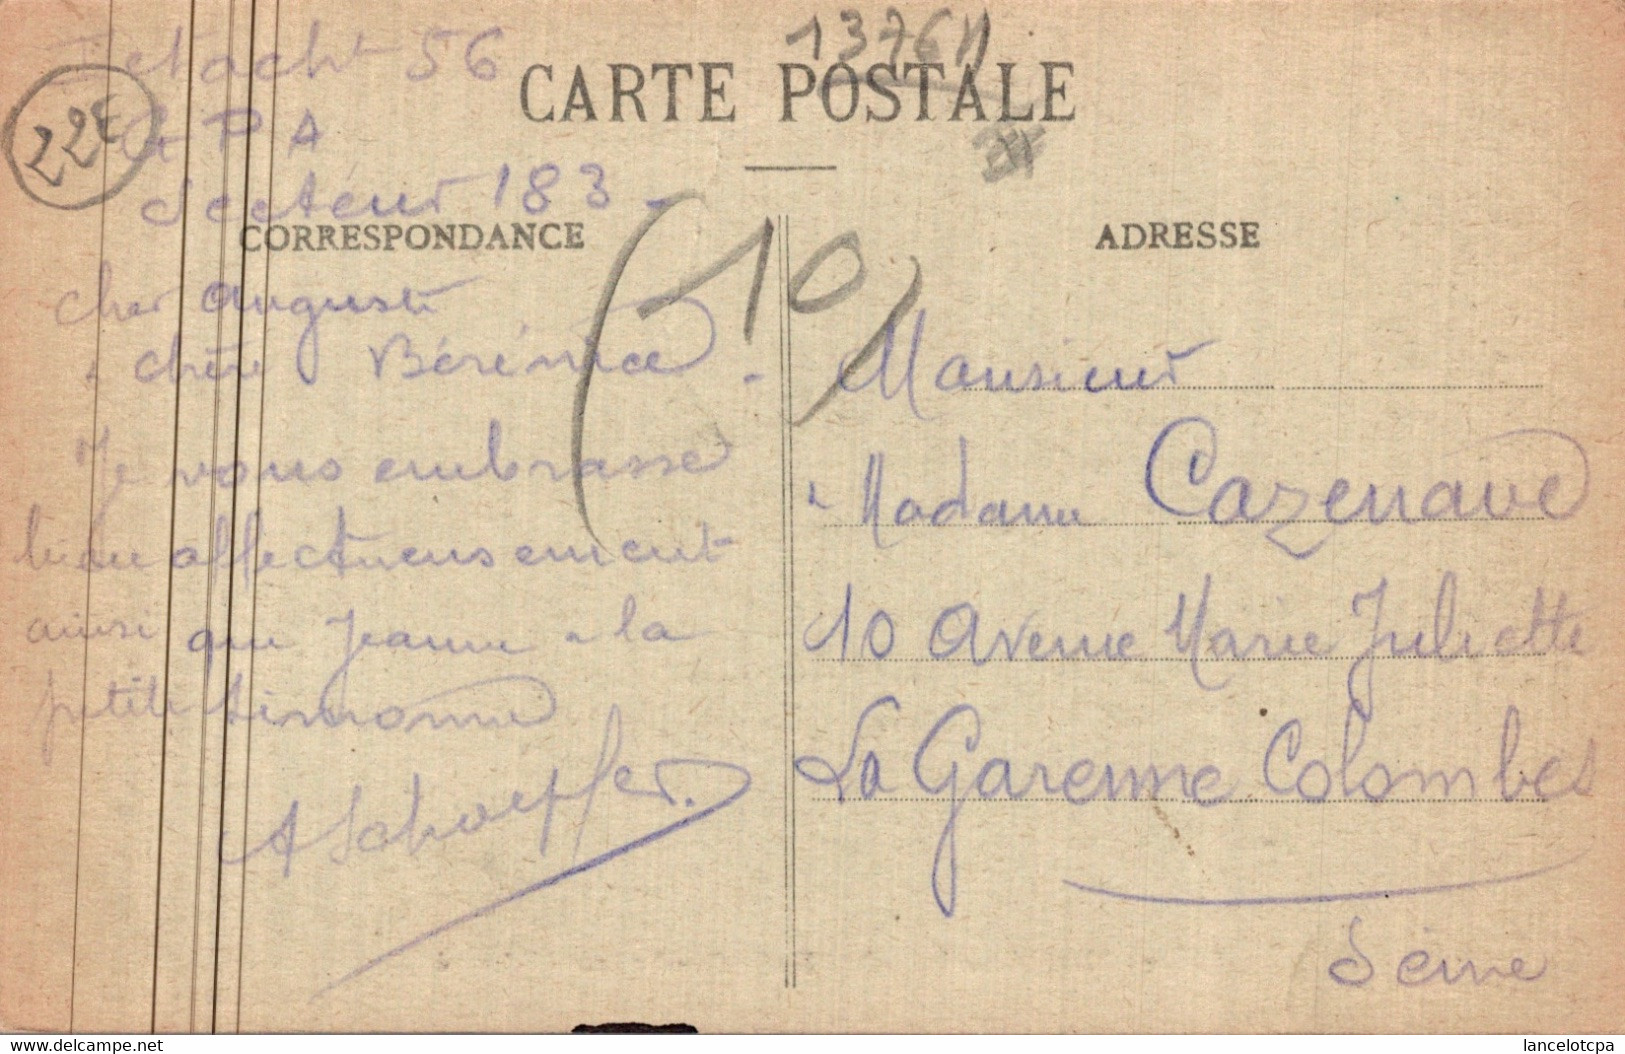 Detacht 56
22E
P A
1376
CARTE POSTALE
Secteur 183
CORRESPONDANCE
(10)
ADRESSE
Cher Auguste
chère Bérénice
Je vous embrasse
bien affectueusement
ainsi que Jeanne & la
petite Simonne
A Schaeffer.
Monsieur
& Madame Cazenave
10 Avenue Marie Juliette
La Garenne Colombes
Seine
delcampe.net
lancelotcpa